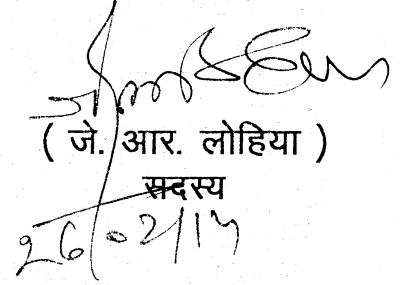 ( जे. आर. लोहिया )
सदस्य
26/02/15